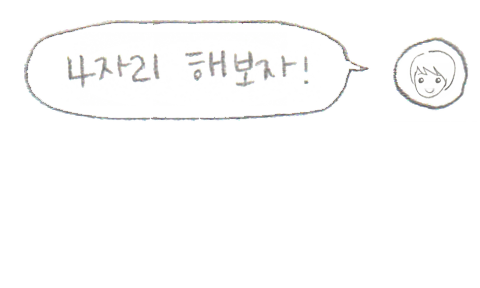 4자리 해보자!